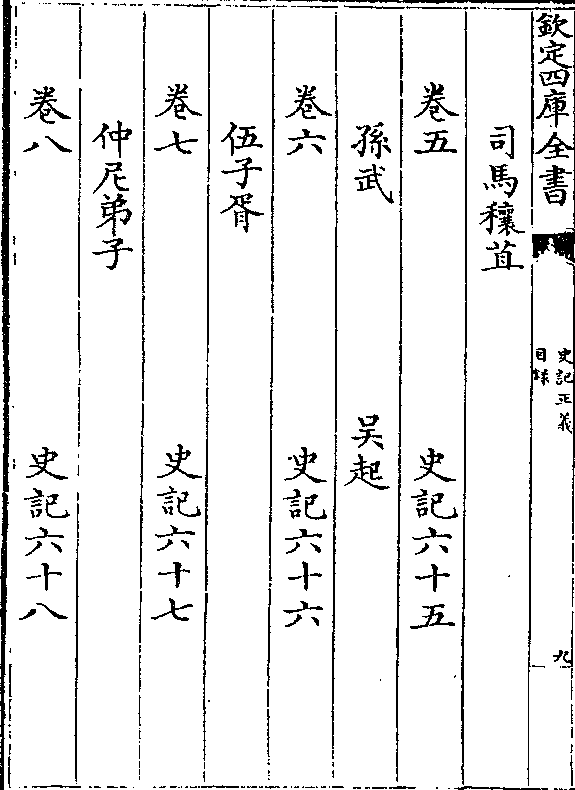 欽定四庫全書
史記正義
目錄
九
司馬穰苴
卷五 史記六十五
孫武 吴起
卷六 史記六十六
伍子胥
卷七 史記六十七
仲尼弟子
卷八 史記六十八